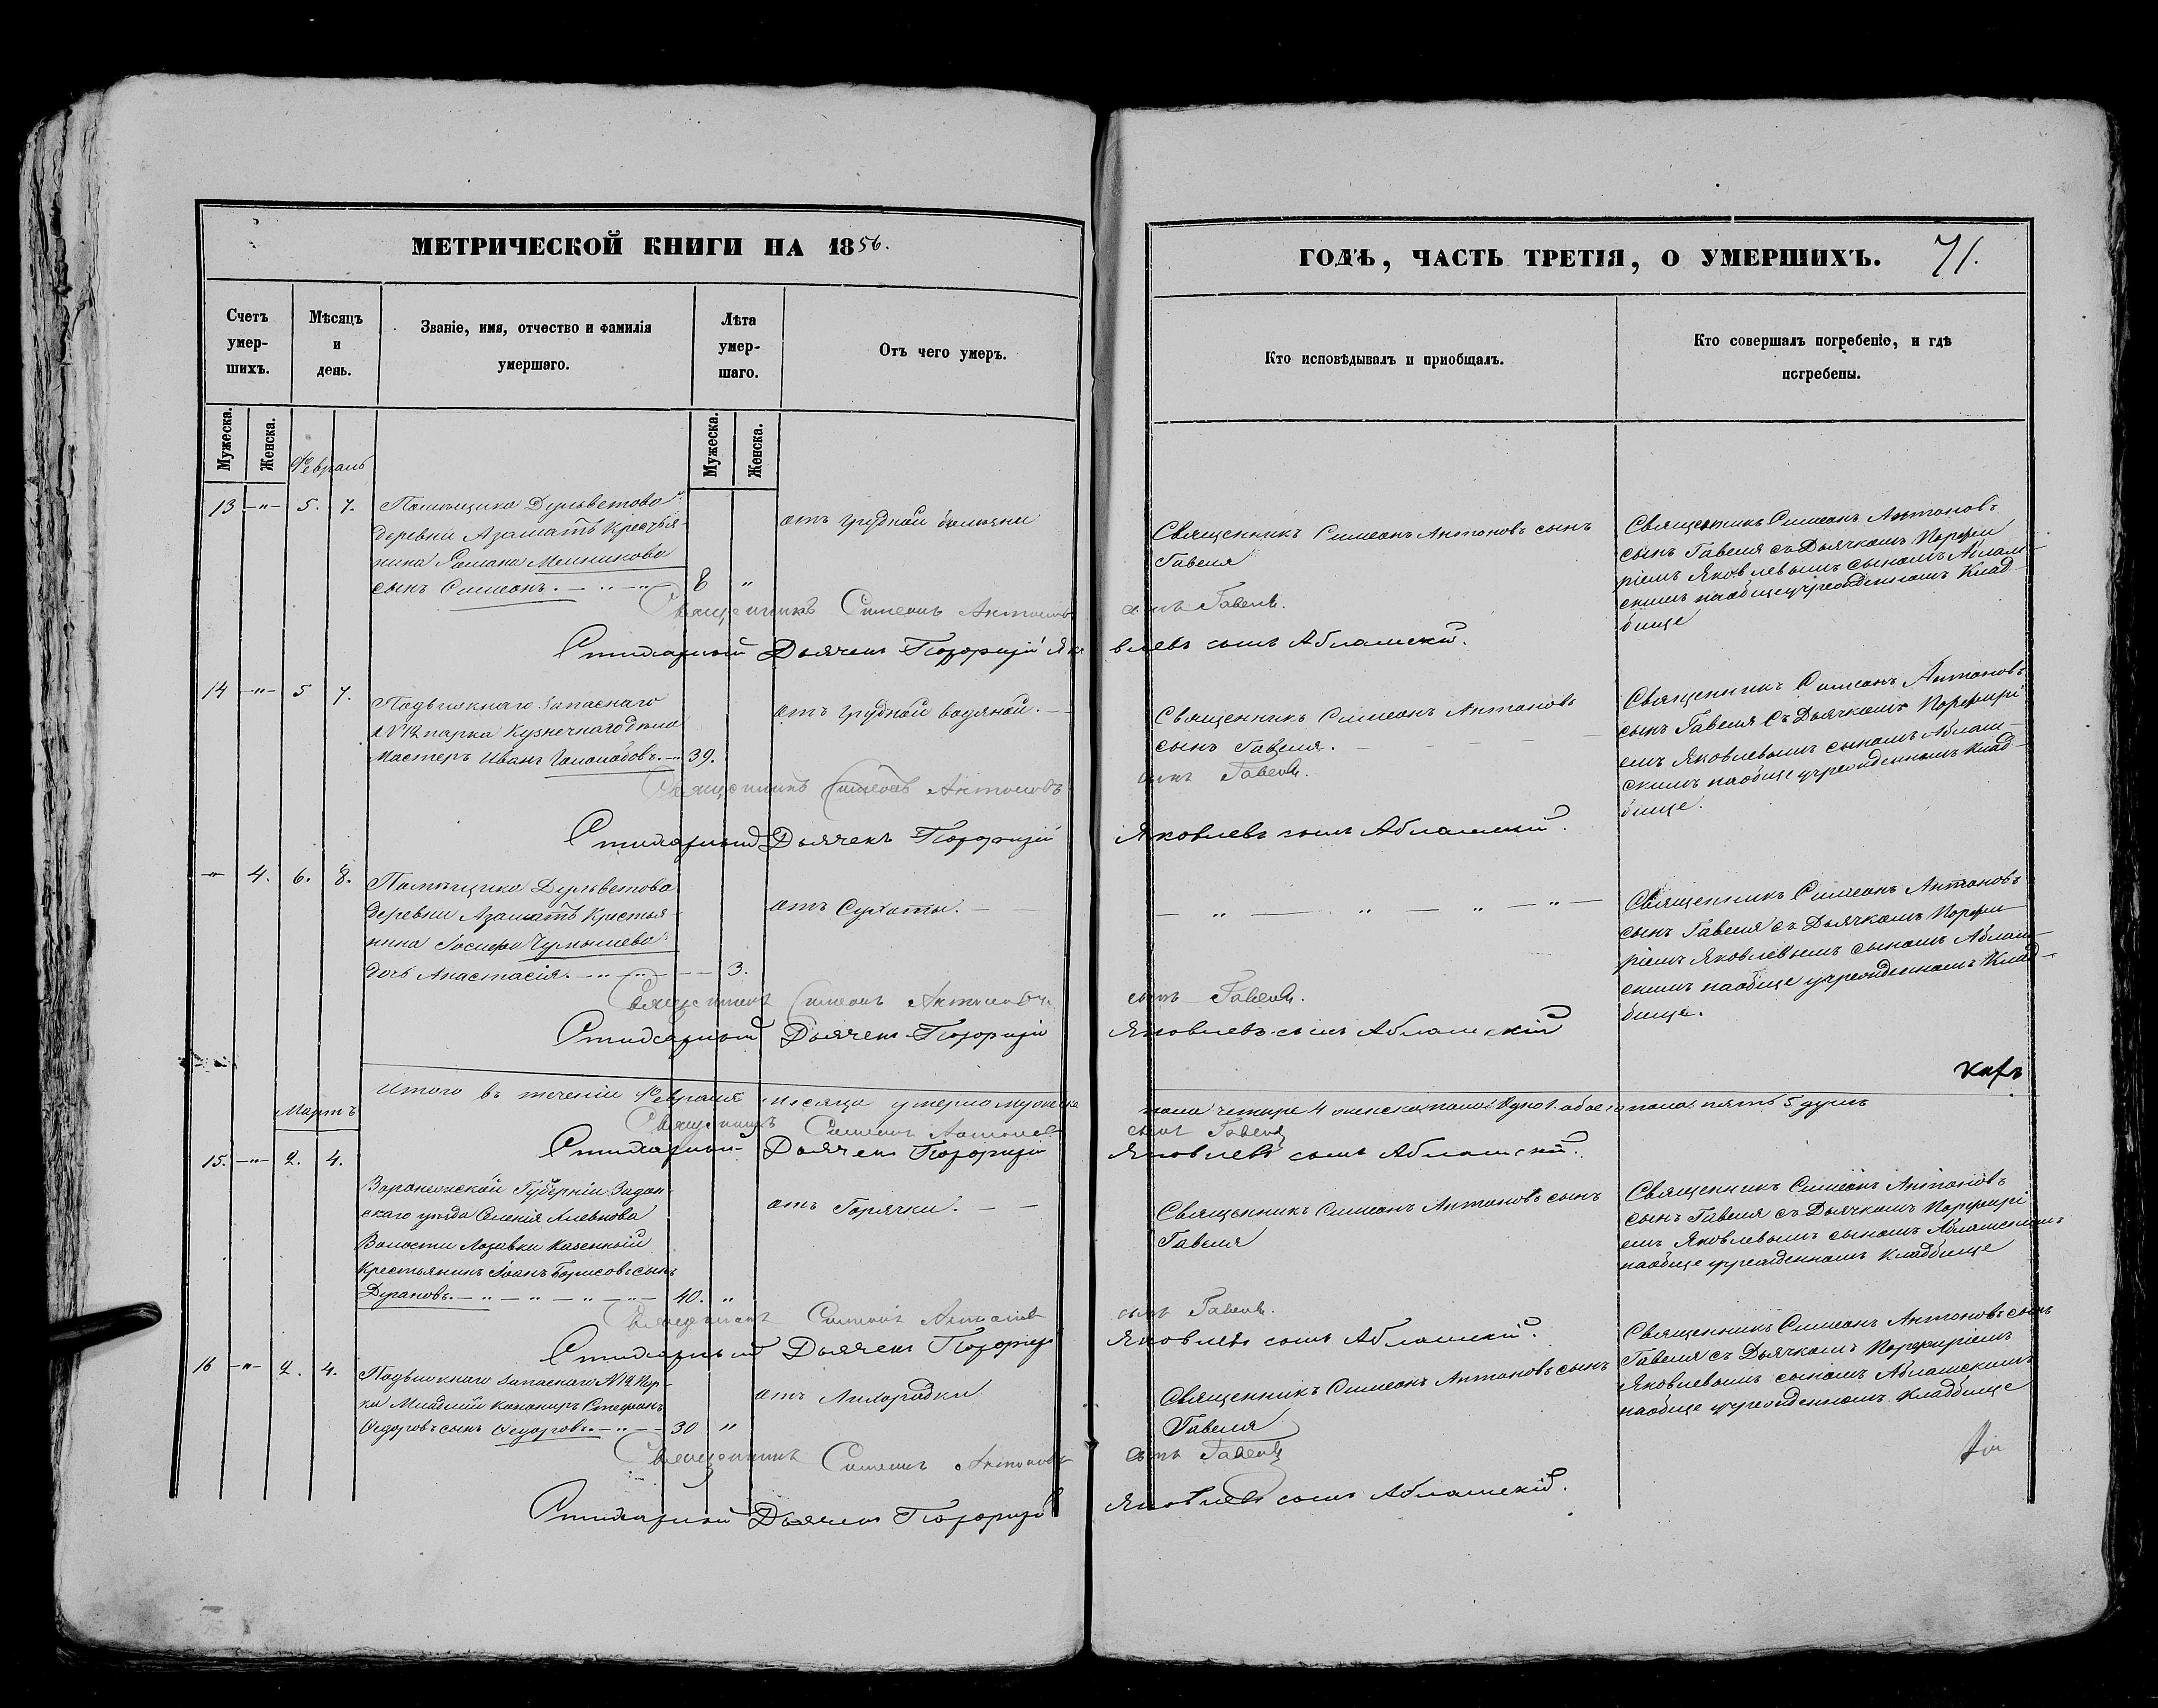 МЕТРИЧЕСКОЙ КНИГИ НА 1856.
Счетъ умер-шихъ.
Мѣсяцъ и день.
Званіе, имя, отчество и фамилія умершаго.
Лѣта умер-шаго.
Отъ чего умеръ.
Мужеска.
Женска.
Мужеска.
Женска.
Февраль
13 -"- 5. 7.
Помѣщика Дульветова
деревни Азаматъ Крестья-
нина Романа Мельникова
сынъ Симеонъ. 8 "
отъ грудной болѣзни
Священникъ Симеонъ Антоновъ
Стихарный Дьячекъ Порфирій Яко
14 -"- 5 7.
Подвижнаго Запаснаго
№ 12 парка Кузнечнаго дѣла
Мастеръ Иванъ 39.
отъ грудной водяной.
Священникъ Симеонъ Антоновъ
Стихарный Дьячекъ Порфирій
-"- 4. 6. 8.
Помѣщика Дульветова
деревни Азаматъ Крестья-
нина Іосифа Чурнышева
дочь Анастасія. 3.
отъ Сухоты.
Священникъ Симеонъ Антоновъ
Стихарный Дьячекъ Порфирій
Итого въ теченіи Февраля мѣсяца умерло мужеска
Священникъ Симеонъ Антоновъ
Мартъ
Стихарный Дьячекъ Порфирій
15. -"- 2. 4.
Воронежской Губерніи Задон-
скаго уѣзда Селенія Хлевнова
Волости Лозовки Казенный
Крестьянинъ Іоанъ Борисовъ сынъ
Дурановъ. 40. "
отъ Горячки.
Священникъ Симеонъ Антоновъ
Стихарный Дьячекъ Порфирій
16 -"- 2. 4.
Подвижнаго Запаснаго № 12 Пар-
ка Младшій Канониръ Стефанъ
Федоровъ сынъ Федоровъ. 30 "
отъ Лихорадки
Священникъ Симеонъ Антоновъ
Стихарный Дьячекъ Порфирій
ГОДЪ, ЧАСТЬ ТРЕТІЯ, О УМЕРШИХЪ. 71.
Кто исповѣдывалъ и приобщалъ.
Кто совершалъ погребеніе, и гдѣ
погребены.
Священникъ Симеонъ Антоновъ сынъ
Гавеля
Священникъ Симеонъ Антоновъ
сынъ Гавеля съ Дьячкомъ Порфи
ріемъ Яковлевымъ сыномъ Аблам-
скимъ наобще учрежденномъ Клад-
бище
сынъ Гавеля.
влевъ сынъ Абламскій.
Священникъ Симеонъ Антоновъ
сынъ Гавеля.
Священникъ Симеонъ Антоновъ
сынъ Гавеля съ Дьячкомъ Порфирі
емъ Яковлевымъ сыномъ Аблам-
скимъ наобще учрежденномъ Клад-
бище.
сынъ Гавеля.
Яковлевъ сынъ Абламскій.
— " — " — " — " —
Священникъ Симеонъ Антоновъ
сынъ Гавеля съ Дьячкомъ Порфи-
ріемъ Яковлевымъ сыномъ Аблам-
скимъ наобще учрежденномъ Клад-
бище.
сынъ Гавеля.
Яковлевъ сынъ Абламскій
пола четыре 4 женска пола одно 1. обоего пола пять 5 душъ
сынъ Гавеля
Яковлевъ сынъ Абламскій.
Священникъ Симеонъ Антоновъ сынъ
Гавеля
Священникъ Симеонъ Антоновъ
сынъ Гавеля съ Дьячкомъ Порфирі
емъ Яковлевымъ сыномъ Абламскимъ
наобще учрежденномъ Кладбище
сынъ Гавеля.
Яковлевъ сынъ Абламскій.
Священникъ Симеонъ Антоновъ сынъ
Гавеля
Священникъ Симеонъ Антоновъ сынъ
Гавеля съ Дьячкомъ Порфиріемъ
Яковлевымъ сыномъ Абламскимъ
наобще учрежденномъ Кладбище
сынъ Гавеля
Яковлевъ сынъ Абламскій.